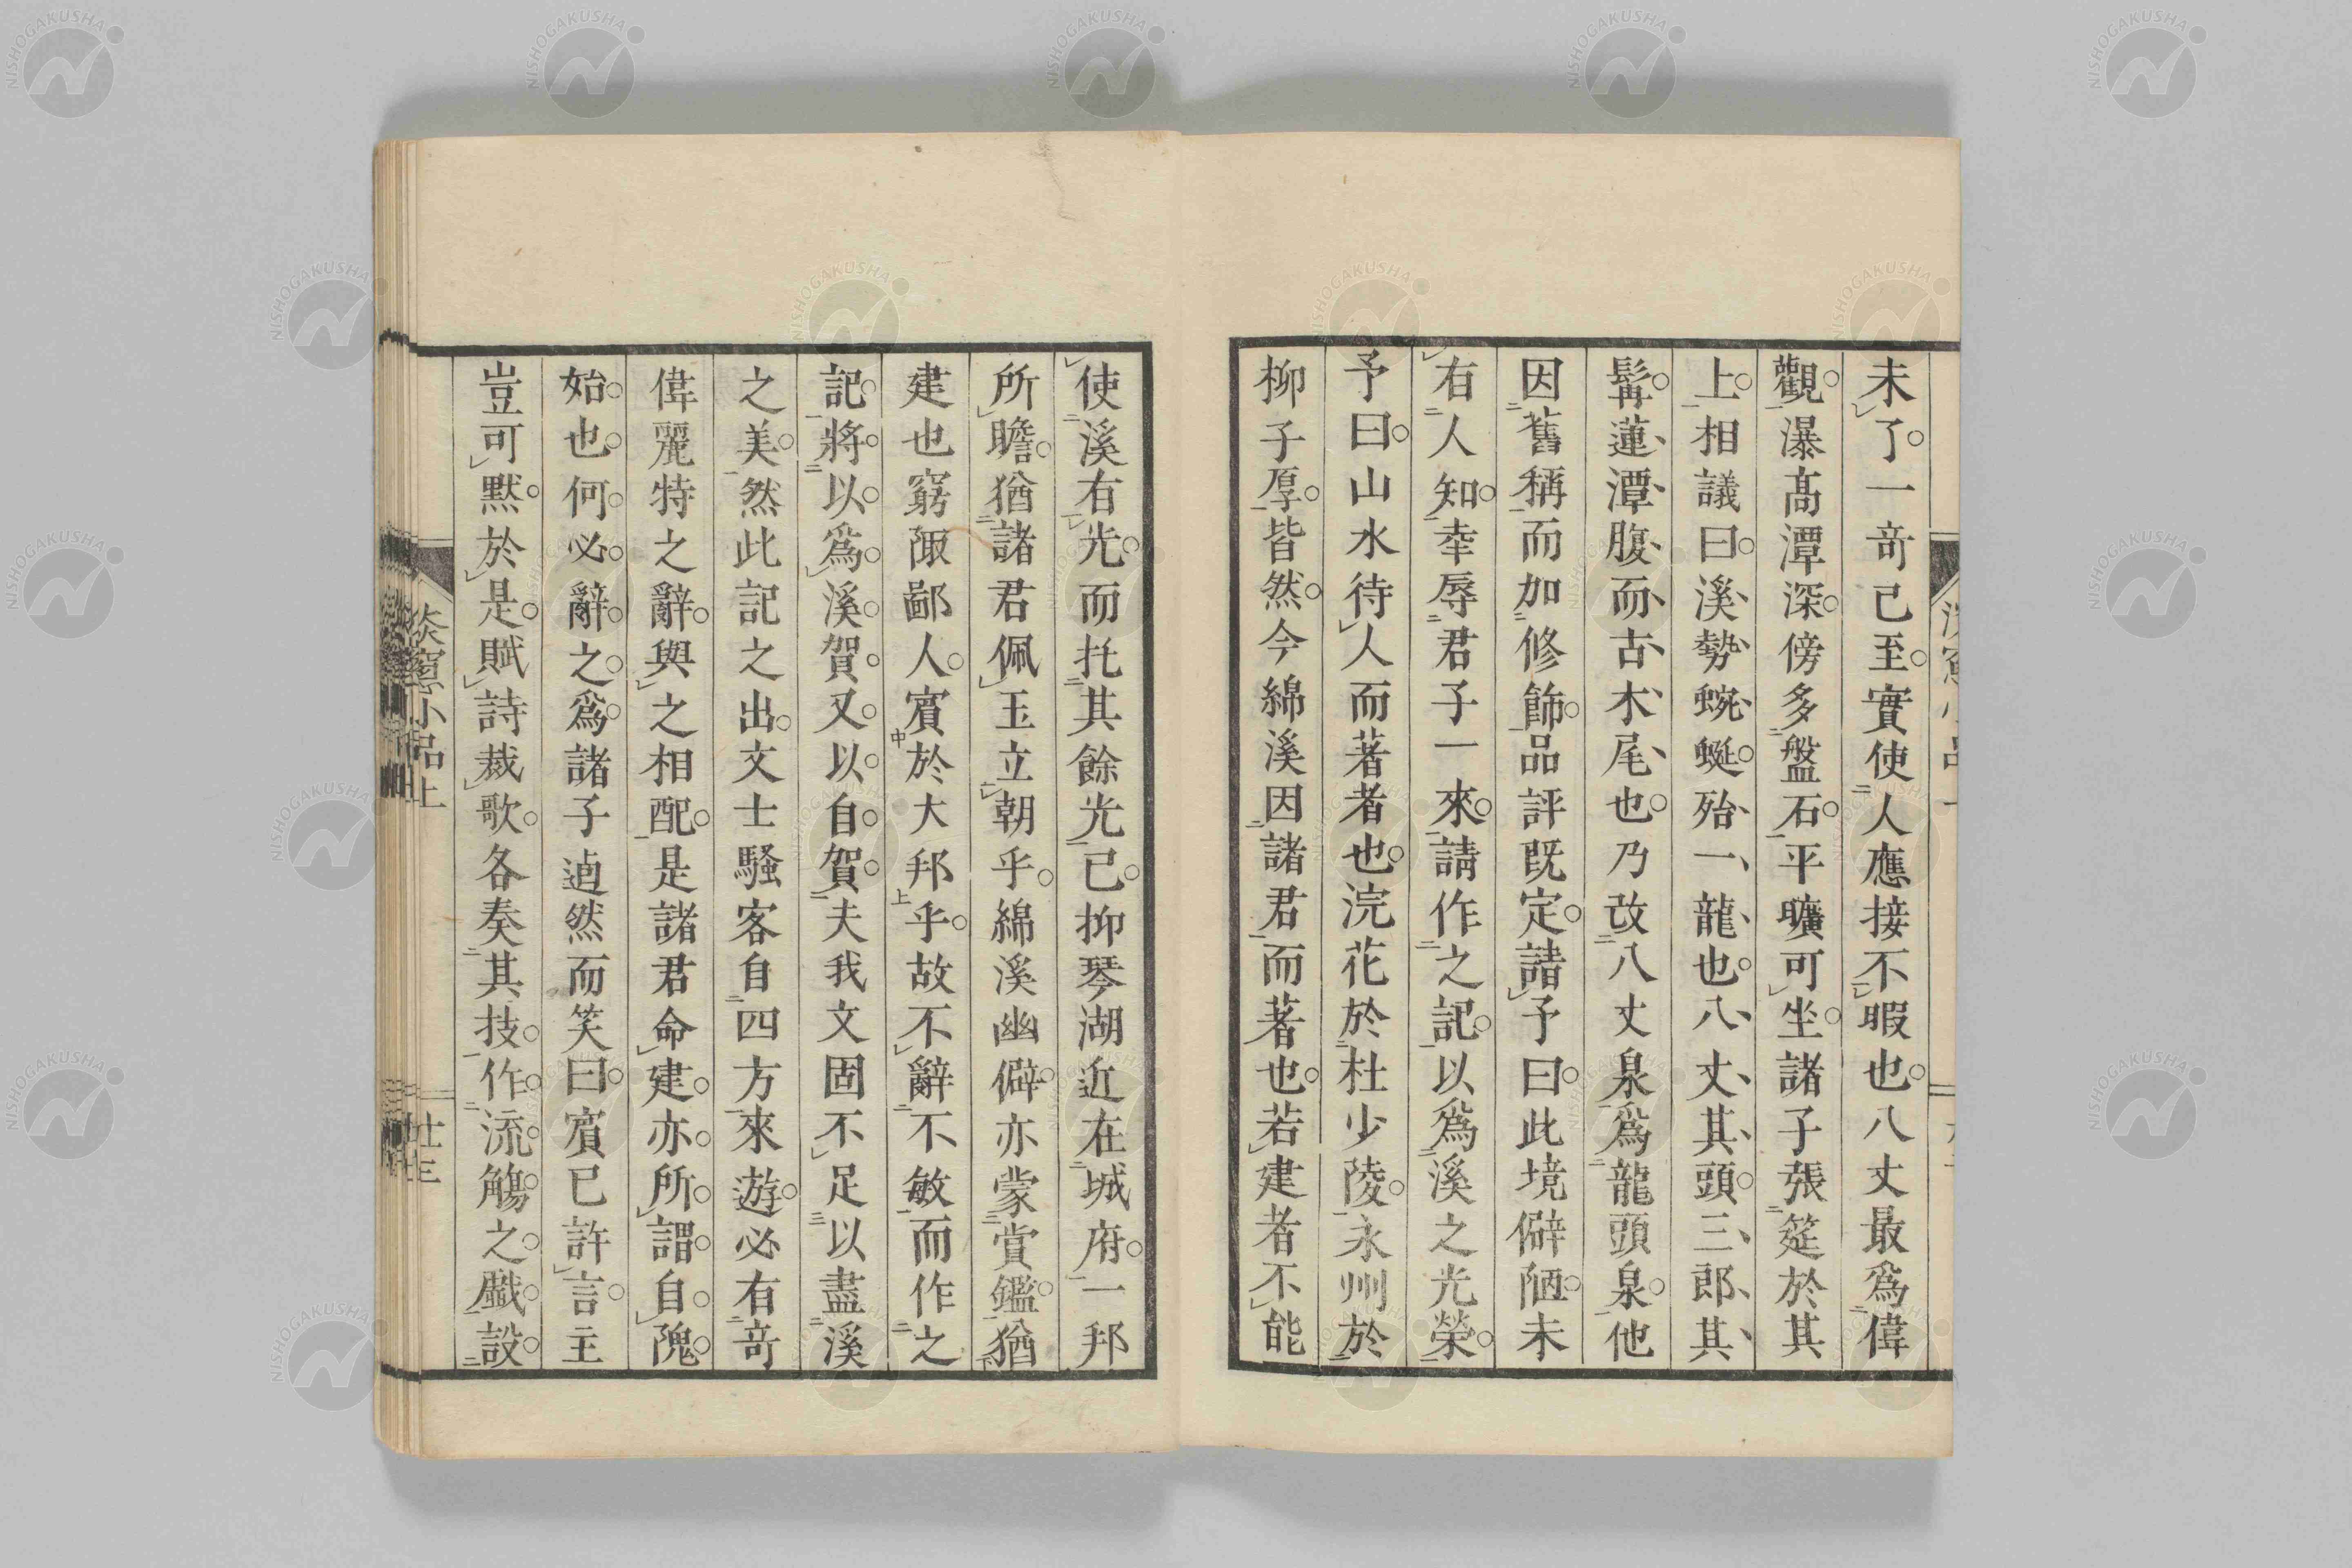 未了一奇已至實使人應接不暇也八丈最爲偉
觀瀑高潭深傍多盤石平曠可坐諸子張筵於其
上相議曰溪勢蜿蜒殆一龍也八丈其頭三郎其
髯蓮潭腹而古木尾也乃改八丈泉爲龍頭泉他
因舊稱而加修飾品評既定諸予曰此境僻陋未
有人知幸辱君子一來請作之記以爲溪之光榮
予曰山水待人而著者也浣花於杜少陵永州於
柳子厚皆然今綿溪因諸君而著也若建者不能
使溪有光而托其餘光已抑琴湖近在城府一邦
所瞻猶諸君佩玉立朝乎綿溪幽僻亦蒙賞鑑猶
建也窮陬鄙人賓於大邦乎故不辭不敏而作之
記將以爲溪賀又以自賀夫我文固不足以盡溪
之美然此記之出文士騷客自四方來遊必有奇
偉麗特之辭與之相配是諸君命建亦所謂自隗
始也何必辭之爲諸子逌然而笑曰賓已許言主
豈可默於是賦詩裁歌各奏其技作流觴之戲設
淡窻小品上
廿三
NISHOGAKUSHA